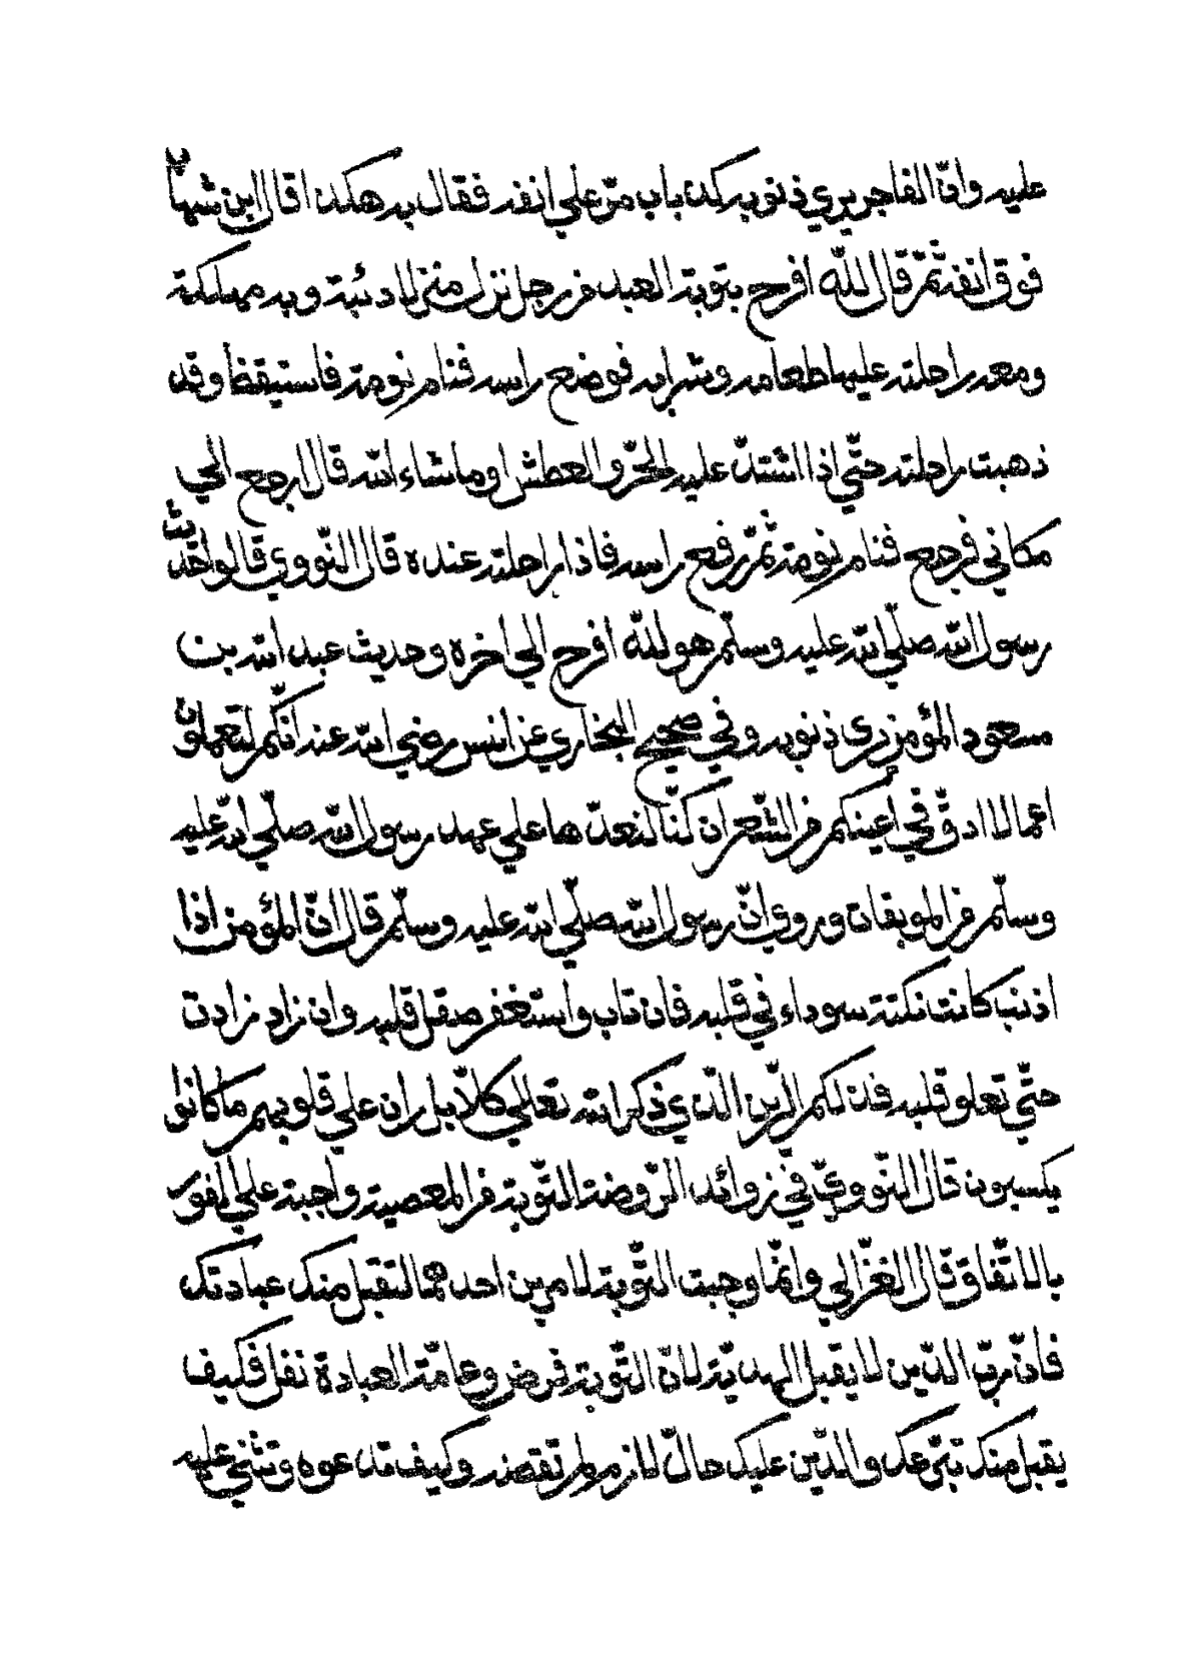 عليه وانّ الفاجر يري ذنوبه كذباب مرّ علي انفه فقال به هكذا قال ابن شهاب
فوق انفه ثمّ قال لله افرح بتوبة العبد من رجل نزل منزلا دنية وبه مهلكة
ومعه راحلته عليها طعامه وشرابه فوضع راسه فنام نومة فاستيقظ وقد
ذهبت راحلته حتّي اذا اشتدّ عليه الحرّ والعطش او ما شاء الله قال ارجع الي
مكاني فرجع فنام نومة ثمّ رفع راسه فاذا راحلته عنده قال النّووي قالوا حديث
رسول الله صلّي الله عليه وسلّم هو لله افرح الي اخره وحديث عبد الله بن
مسعود المؤمن يري ذنوبه وفي صحيح البخاري عن انس رضي الله عنه انّكم لتعملون
اعمالا ادقّ في اعينكم من الشّعر ان كنّا لنعدّها علي عهد رسول الله صلّي الله عليه
وسلّم من الموبقات وروي انّ رسول الله صلّي الله عليه وسلّم قال انّ المؤمن اذا
اذنب كانت نكتة سوداء في قلبه فان تاب واستغفر صقل قلبه وان زاد زادت
حتّي تعلو قلبه فذلكم الرّين الّذي ذكر الله تعالي كلّا بل ران علي قلوبهم ما كانوا
يكسبون قال النّوويّ في زوائد الرّوضة التّوبة من المعصية واجبة علي الفور
بالاتّفاق قال الغزالي وانّما وجبت التّوبة لامرين احدهما لتقبل منك عبادتك
فانّ ربّ الدّين لا يقبل الهديّة لانّ التّوبة فرض وعامّة العبادة نفل فكيف
يقبل منك تبرّعك والدّين عليك حالّ لازم ولم تقضه وكيف تدعوه وتثني عليه